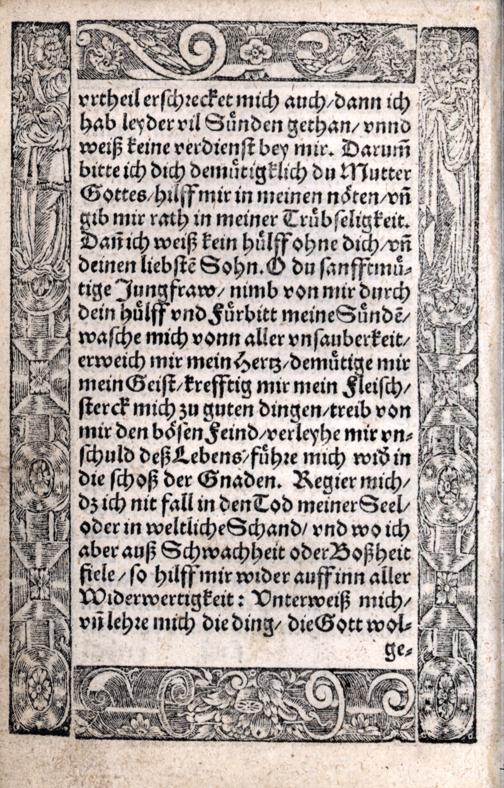 vrtheil erschrecket mich auch/ dann ich
hab leyder vil Sünden gethan/ vnnd
weiß keine verdienst bey mir. Darum̃
bitte ich dich demütigklich du Mutter
Gottes/ hilff mir in meinen nöten/ vñ
gib mir rath in meiner Trübseligkeit.
Dañ ich weiß kein hülff ohne dich/ vñ
deinen liebstẽ Sohn. O du sanfftmü⸗
tige Jungfraw/ nimb von mir durch
dein hülff vnd Fürbitt meine Sündẽ/
wasche mich vonn aller vnsauberkeit/
erweich mir mein Hertz/ demütige mir
mein Geist/ krefftig mir mein Fleisch/
sterck mich zu guten dingen/ treib von
mir den bösen Feind/ verleyhe mir vn⸗
schuld deß Lebens/ führe mich wið in
die schoß der Gnaden. Regier mich/
dz ich nit fall in den Tod meiner Seel/
oder in weltliche Schand/ vnd wo ich
aber auß Schwachheit oder Boßheit
fiele/ so hilff mir wider auff inn aller
Widerwertigkeit: Vnterweiß mich/
vñ lehre mich die ding/ die Gott wol⸗
ge⸗